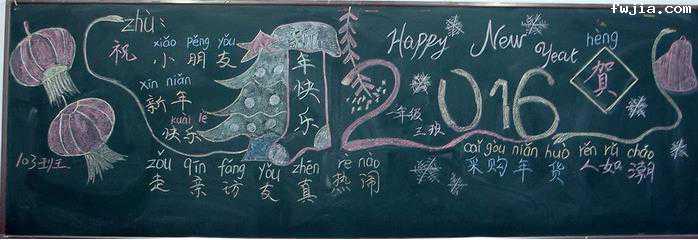 fwjia.com
zhù:
xiǎo péng yǒu
祝小朋友
xīn nián
新年
kuài lè
快乐
年快乐
Happy New Year
hèng
贺
2016
一年级
三班
103班
zǒu qīn fǎng yǒu zhēn rè nào
走亲访友真热闹
cǎi gòu nián huò rén rú cháo
采购年货人如潮